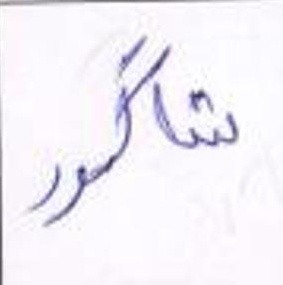 شاگور